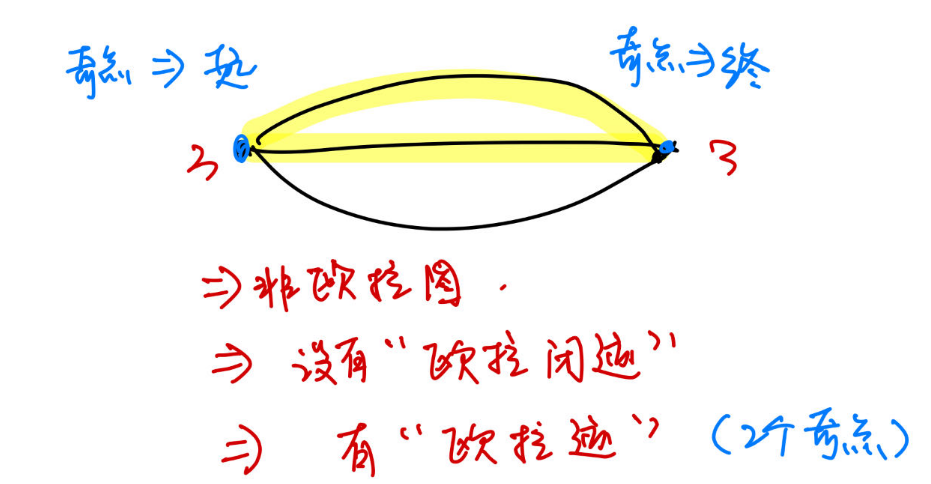 奇点 ⇒ 起
奇点 ⇒ 终
3
3
⇒ 非欧拉图.
⇒ 没有“欧拉闭迹”
⇒ 有“欧拉迹”(2个奇点)